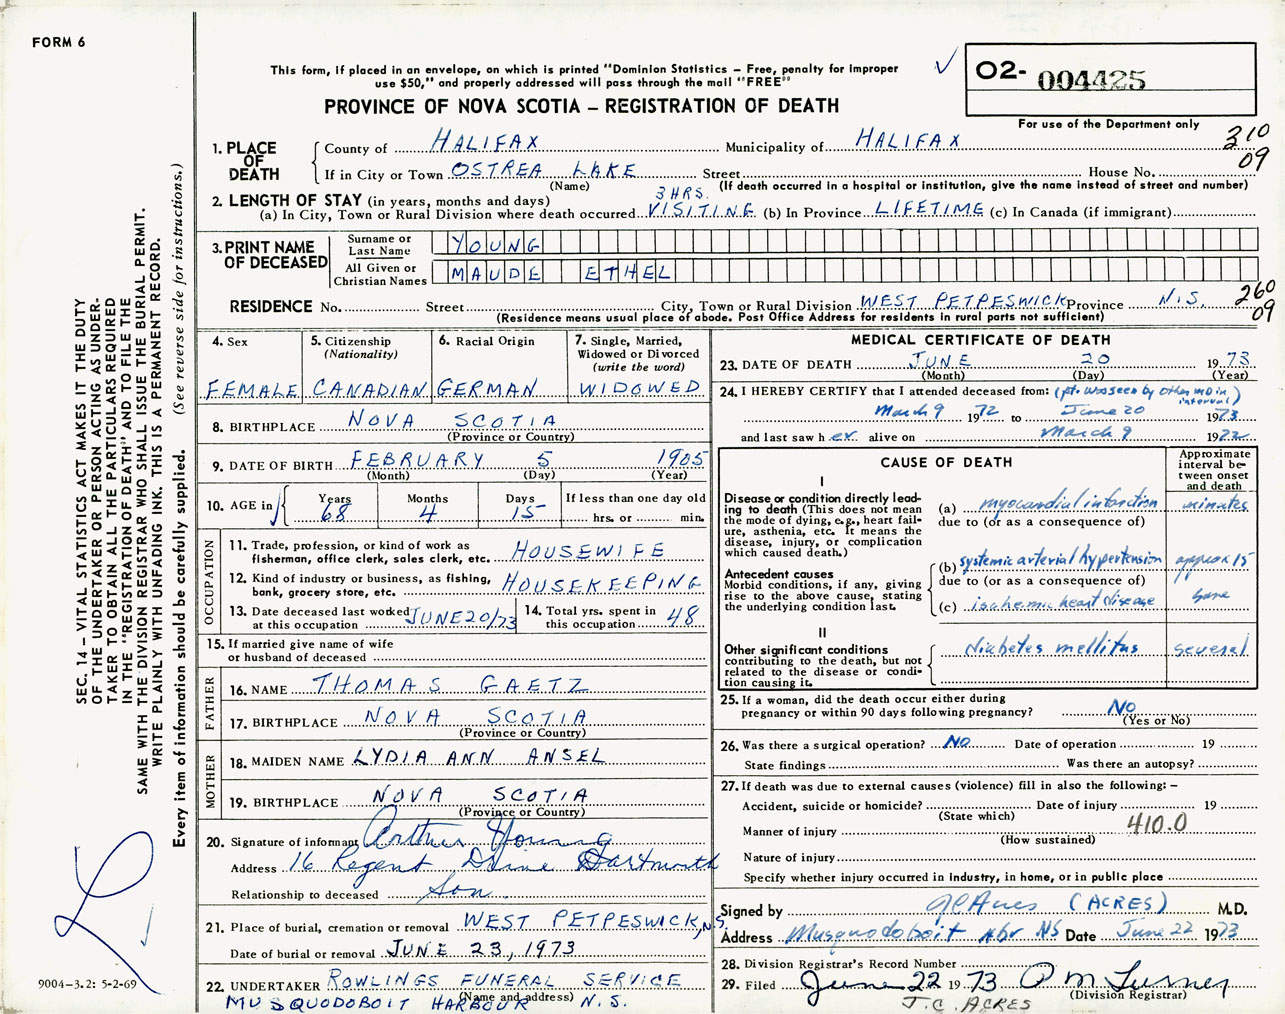 FORM 6
This form, if placed in an envelope, on which is printed "Dominion Statistics – Free, penalty for improper
use $50," and properly addressed will pass through the mail "FREE"
PROVINCE OF NOVA SCOTIA – REGISTRATION OF DEATH
O2- 004425
For use of the Department only
210
09
1. PLACE OF DEATH
County of HALIFAX Municipality of HALIFAX
If in City or Town OSTREA LAKE Street House No.
(Name) (If death occurred in a hospital or institution, give the name instead of street and number)
2. LENGTH OF STAY (in years, months and days) 3 HRS.
(a) In City, Town or Rural Division where death occurred VISITING (b) In Province LIFETIME (c) In Canada (if immigrant)
3. PRINT NAME OF DECEASED
Surname or Last Name YOUNG
All Given or Christian Names MAUDE ETHEL
RESIDENCE No. Street City, Town or Rural Division WEST PETPESWICK Province N.S. 260
09
(Residence means usual place of abode. Post Office Address for residents in rural parts not sufficient)
4. Sex FEMALE
5. Citizenship (Nationality) CANADIAN
6. Racial Origin GERMAN
7. Single, Married, Widowed or Divorced (write the word) WIDOWED
8. BIRTHPLACE NOVA SCOTIA
(Province or Country)
9. DATE OF BIRTH FEBRUARY 5 1905
(Month) (Day) (Year)
10. AGE in Years 68 Months 4 Days 15 If less than one day old hrs. or min.
OCCUPATION
11. Trade, profession, or kind of work as
fisherman, office clerk, sales clerk, etc. HOUSEWIFE
12. Kind of industry or business, as fishing,
bank, grocery store, etc. HOUSEKEEPING
13. Date deceased last worked
at this occupation JUNE 20/73
14. Total yrs. spent in
this occupation 48
15. If married give name of wife
or husband of deceased
FATHER
16. NAME THOMAS GAETZ
17. BIRTHPLACE NOVA SCOTIA
(Province or Country)
MOTHER
18. MAIDEN NAME LYDIA ANN ANSEL
19. BIRTHPLACE NOVA SCOTIA
(Province or Country)
20. Signature of informant Arthur Young
Address 16 Regent Drive Dartmouth
Relationship to deceased Son
21. Place of burial, cremation or removal WEST PETPESWICK, N.S.
Date of burial or removal JUNE 23, 1973
22. UNDERTAKER ROWLINGS FUNERAL SERVICE
(Name and address)
MUSQUODOBOIT HARBOUR N.S.
MEDICAL CERTIFICATE OF DEATH
23. DATE OF DEATH JUNE 20 1973
(Month) (Day) (Year)
24. I HEREBY CERTIFY that I attended deceased from: (pt. was seen by other MD in
interval)
March 9 1972 to June 20 1973
and last saw her alive on March 9 1972
CAUSE OF DEATH
Approximate interval between onset and death
I
Disease or condition directly leading to death (This does not mean the mode of dying, e.g., heart failure, asthenia, etc. It means the disease, injury, or complication which caused death.)
(a) myocardial infarction minutes
due to (or as a consequence of)
Antecedent causes
Morbid conditions, if any, giving rise to the above cause, stating the underlying condition last.
(b) systemic arterial hypertension approx 15
due to (or as a consequence of)
(c) ischemic heart disease
II
Other significant conditions
contributing to the death, but not related to the disease or condition causing it.
diabetes mellitus several
25. If a woman, did the death occur either during
pregnancy or within 90 days following pregnancy? No
(Yes or No)
26. Was there a surgical operation? No Date of operation 19
State findings Was there an autopsy?
27. If death was due to external causes (violence) fill in also the following: –
Accident, suicide or homicide? Date of injury 19
(State which)
Manner of injury 410.0
(How sustained)
Nature of injury
Specify whether injury occurred in industry, in home, or in public place
Signed by (ACRES) M.D.
Address Musquodoboit Hbr NS Date June 22 1973
28. Division Registrar's Record Number
29. Filed June 22 1973 P M Turner
(Division Registrar)
J.C. ACRES
SEC. 14 – VITAL STATISTICS ACT MAKES IT THE DUTY
OF THE UNDERTAKER OR PERSON ACTING AS UNDER-
TAKER TO OBTAIN ALL THE PARTICULARS REQUIRED
IN THE "REGISTRATION OF DEATH" AND TO FILE THE
SAME WITH THE DIVISION REGISTRAR WHO SHALL ISSUE THE BURIAL PERMIT.
WRITE PLAINLY WITH UNFADING INK. THIS IS A PERMANENT RECORD.
Every item of information should be carefully supplied. (See reverse side for instructions.)
9004-3.2: 5-2-69